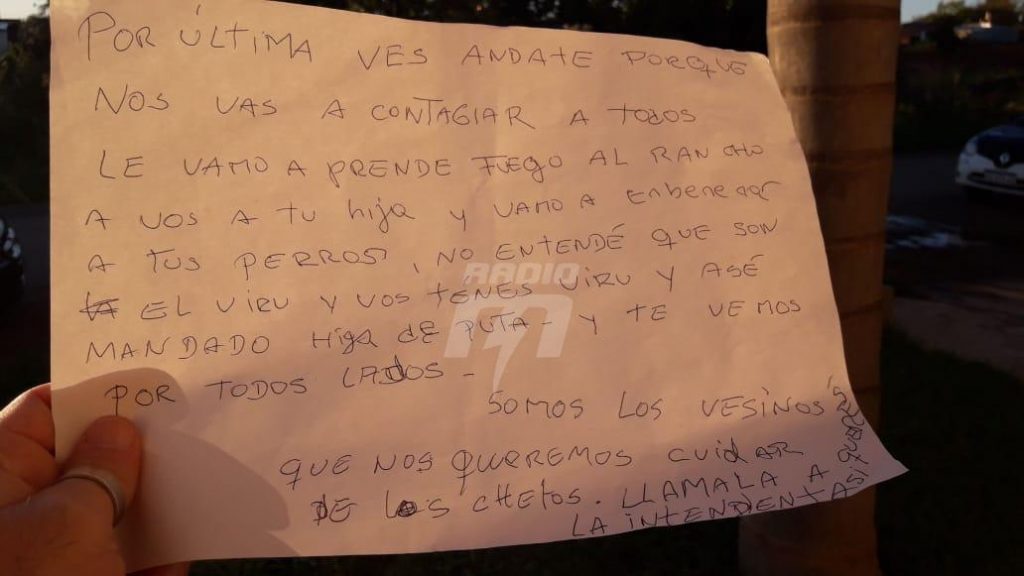 POR ÚLTIMA VES ANDATE PORQUE
NOS VAS A CONTAGIAR A TODOS
LE VAMO A PRENDE FUEGO AL RANCHO
A VOS A TU hijA Y VAMO A EnbENENAR
A TUS PERROS, NO ENTENDÉ QUE SON
EL VIRU Y VOS TÉNES VIRU Y ASÉ
MANDADO HIJA dE PUTA - Y TE VEMOS
POR TODOS LADOS -
SOMOS LOS VESINOS
QUE NOS QUEREMOS CUIDAR
DE LOS CHETOS. LLAMALA A
LA INTENDENTA SI QUERÉS
RADIO
M